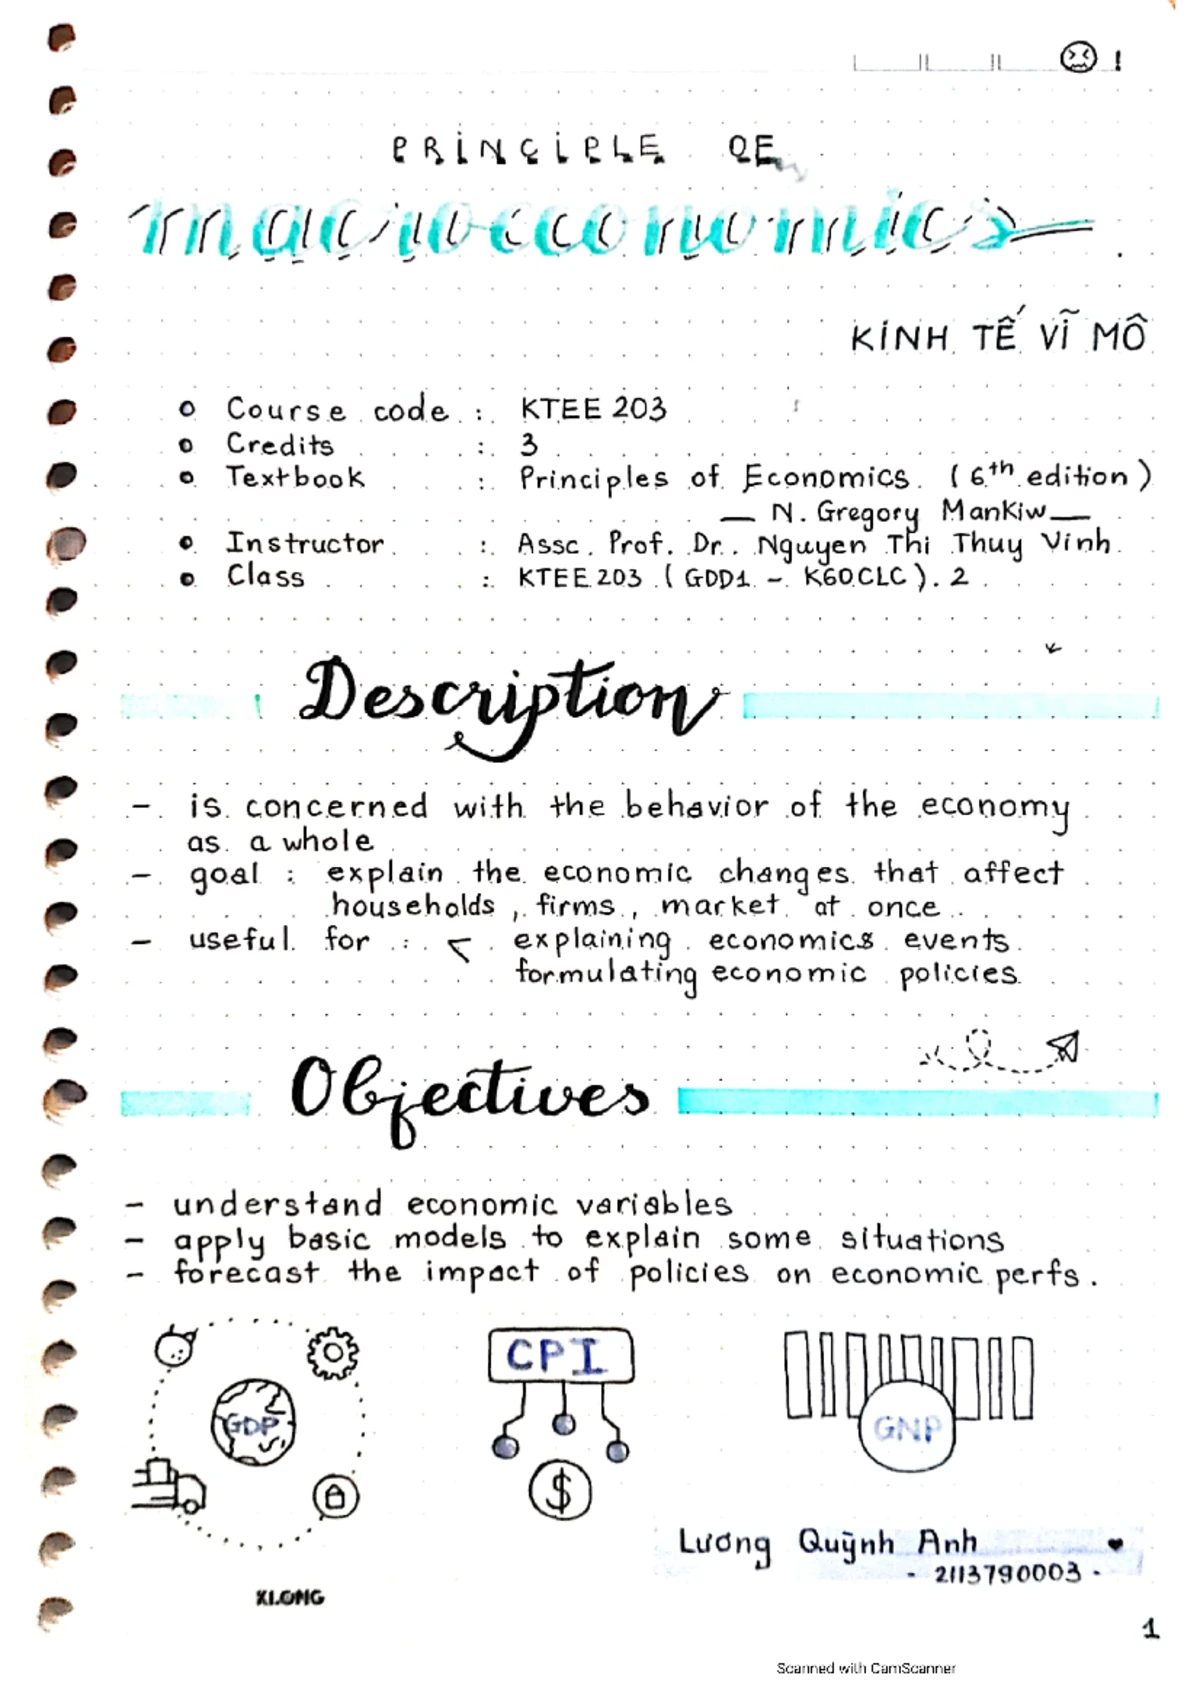 PRINCIPLE OF
macroeconomics
KINH TẾ VĨ MÔ
Course code : KTEE 203
Credits : 3
Textbook : Principles of Economics (6th edition)
— N. Gregory Mankiw —
Instructor : Assc. Prof. Dr. Nguyen Thi Thuy Vinh
Class : KTEE 203 (GDD1 - K60CLC). 2
Description
- is concerned with the behavior of the economy
as a whole
- goal : explain the economic changes that affect
households, firms, market at once
- useful for : < explaining economics events
formulating economic policies
Objectives
- understand economic variables
- apply basic models to explain some situations
- forecast the impact of policies on economic perfs.
GDP
CPI
$
GNP
Lương Quỳnh Anh
- 2113790003 -
KLONG
1
Scanned with CamScanner